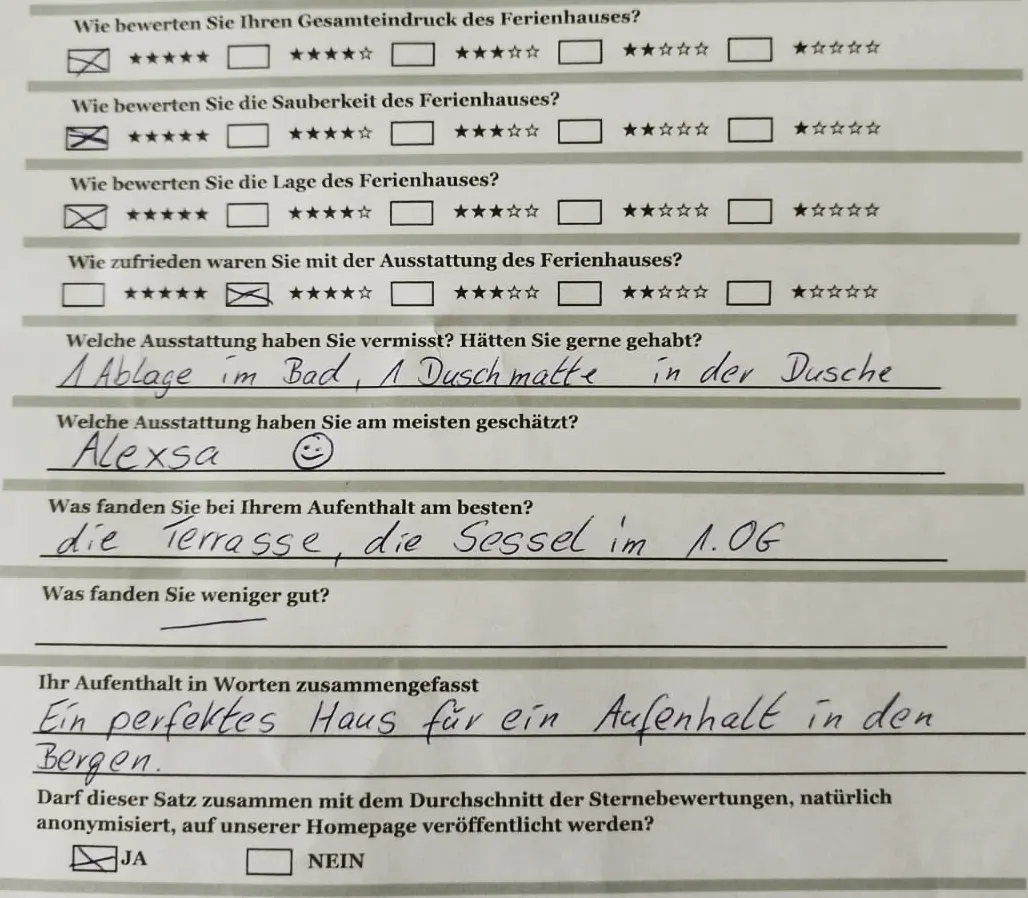 Wie bewerten Sie Ihren Gesamteindruck des Ferienhauses?
☒ ★★★★★ ☐ ★★★★☆ ☐ ★★★☆☆ ☐ ★★☆☆☆ ☐ ★☆☆☆☆
Wie bewerten Sie die Sauberkeit des Ferienhauses?
☒ ★★★★★ ☐ ★★★★☆ ☐ ★★★☆☆ ☐ ★★☆☆☆ ☐ ★☆☆☆☆
Wie bewerten Sie die Lage des Ferienhauses?
☒ ★★★★★ ☐ ★★★★☆ ☐ ★★★☆☆ ☐ ★★☆☆☆ ☐ ★☆☆☆☆
Wie zufrieden waren Sie mit der Ausstattung des Ferienhauses?
☐ ★★★★★ ☒ ★★★★☆ ☐ ★★★☆☆ ☐ ★★☆☆☆ ☐ ★☆☆☆☆
Welche Ausstattung haben Sie vermisst? Hätten Sie gerne gehabt?
1 Ablage im Bad, 1 Duschmatte in der Dusche
Welche Ausstattung haben Sie am meisten geschätzt?
Alexsa ☺
Was fanden Sie bei Ihrem Aufenthalt am besten?
die Terrasse, die Sessel im 1.OG
Was fanden Sie weniger gut?
—
Ihr Aufenthalt in Worten zusammengefasst
Ein perfektes Haus für ein Aufenhalt in den
Bergen.
Darf dieser Satz zusammen mit dem Durchschnitt der Sternebewertungen, natürlich
anonymisiert, auf unserer Homepage veröffentlicht werden?
☒ JA ☐ NEIN